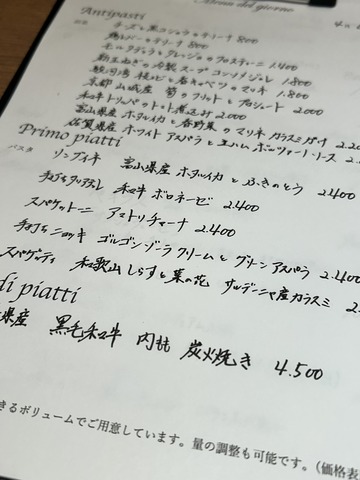 Menu del giorno
Antipasti
前菜
チーズと黒コショウのテリーナ 800
鶏レバーのテリーナ 800
モルタデッラとクレシェンツァのフォカチーニ 1.400
新玉ねぎの冷製スープ コンソメジュレ 1.800
駿河湾 桜エビと春キャベツのマリネ 1.800
京都 山城産 筍のフリットとプロシュート 2.000
和牛トリッパのトマト煮込み 2.000
富山県産 ホタルイカと春野菜のマリネ カラスミがけ 2.200
佐賀県産 ホワイトアスパラと生ハム ボルツァーノソース 2.
Primo piatti
パスタ
リングイネ 富山県産 ホタルイカとふきのとう 2.400
手打ちタリアテレ 和牛ボロネーゼ 2.400
スパゲットーニ アマトリチャーナ 2.400
手打ちニョッキ ゴルゴンゾーラクリームとグリーンアスパラ 2.400
スパゲッティ 和歌山しらすと菜の花 サルデーニャ産カラスミ 2
di piatti
県産 黒毛和牛 内もも 炭火焼き 4.500
きるボリュームでご用意しています。量の調整も可能です。(価格表